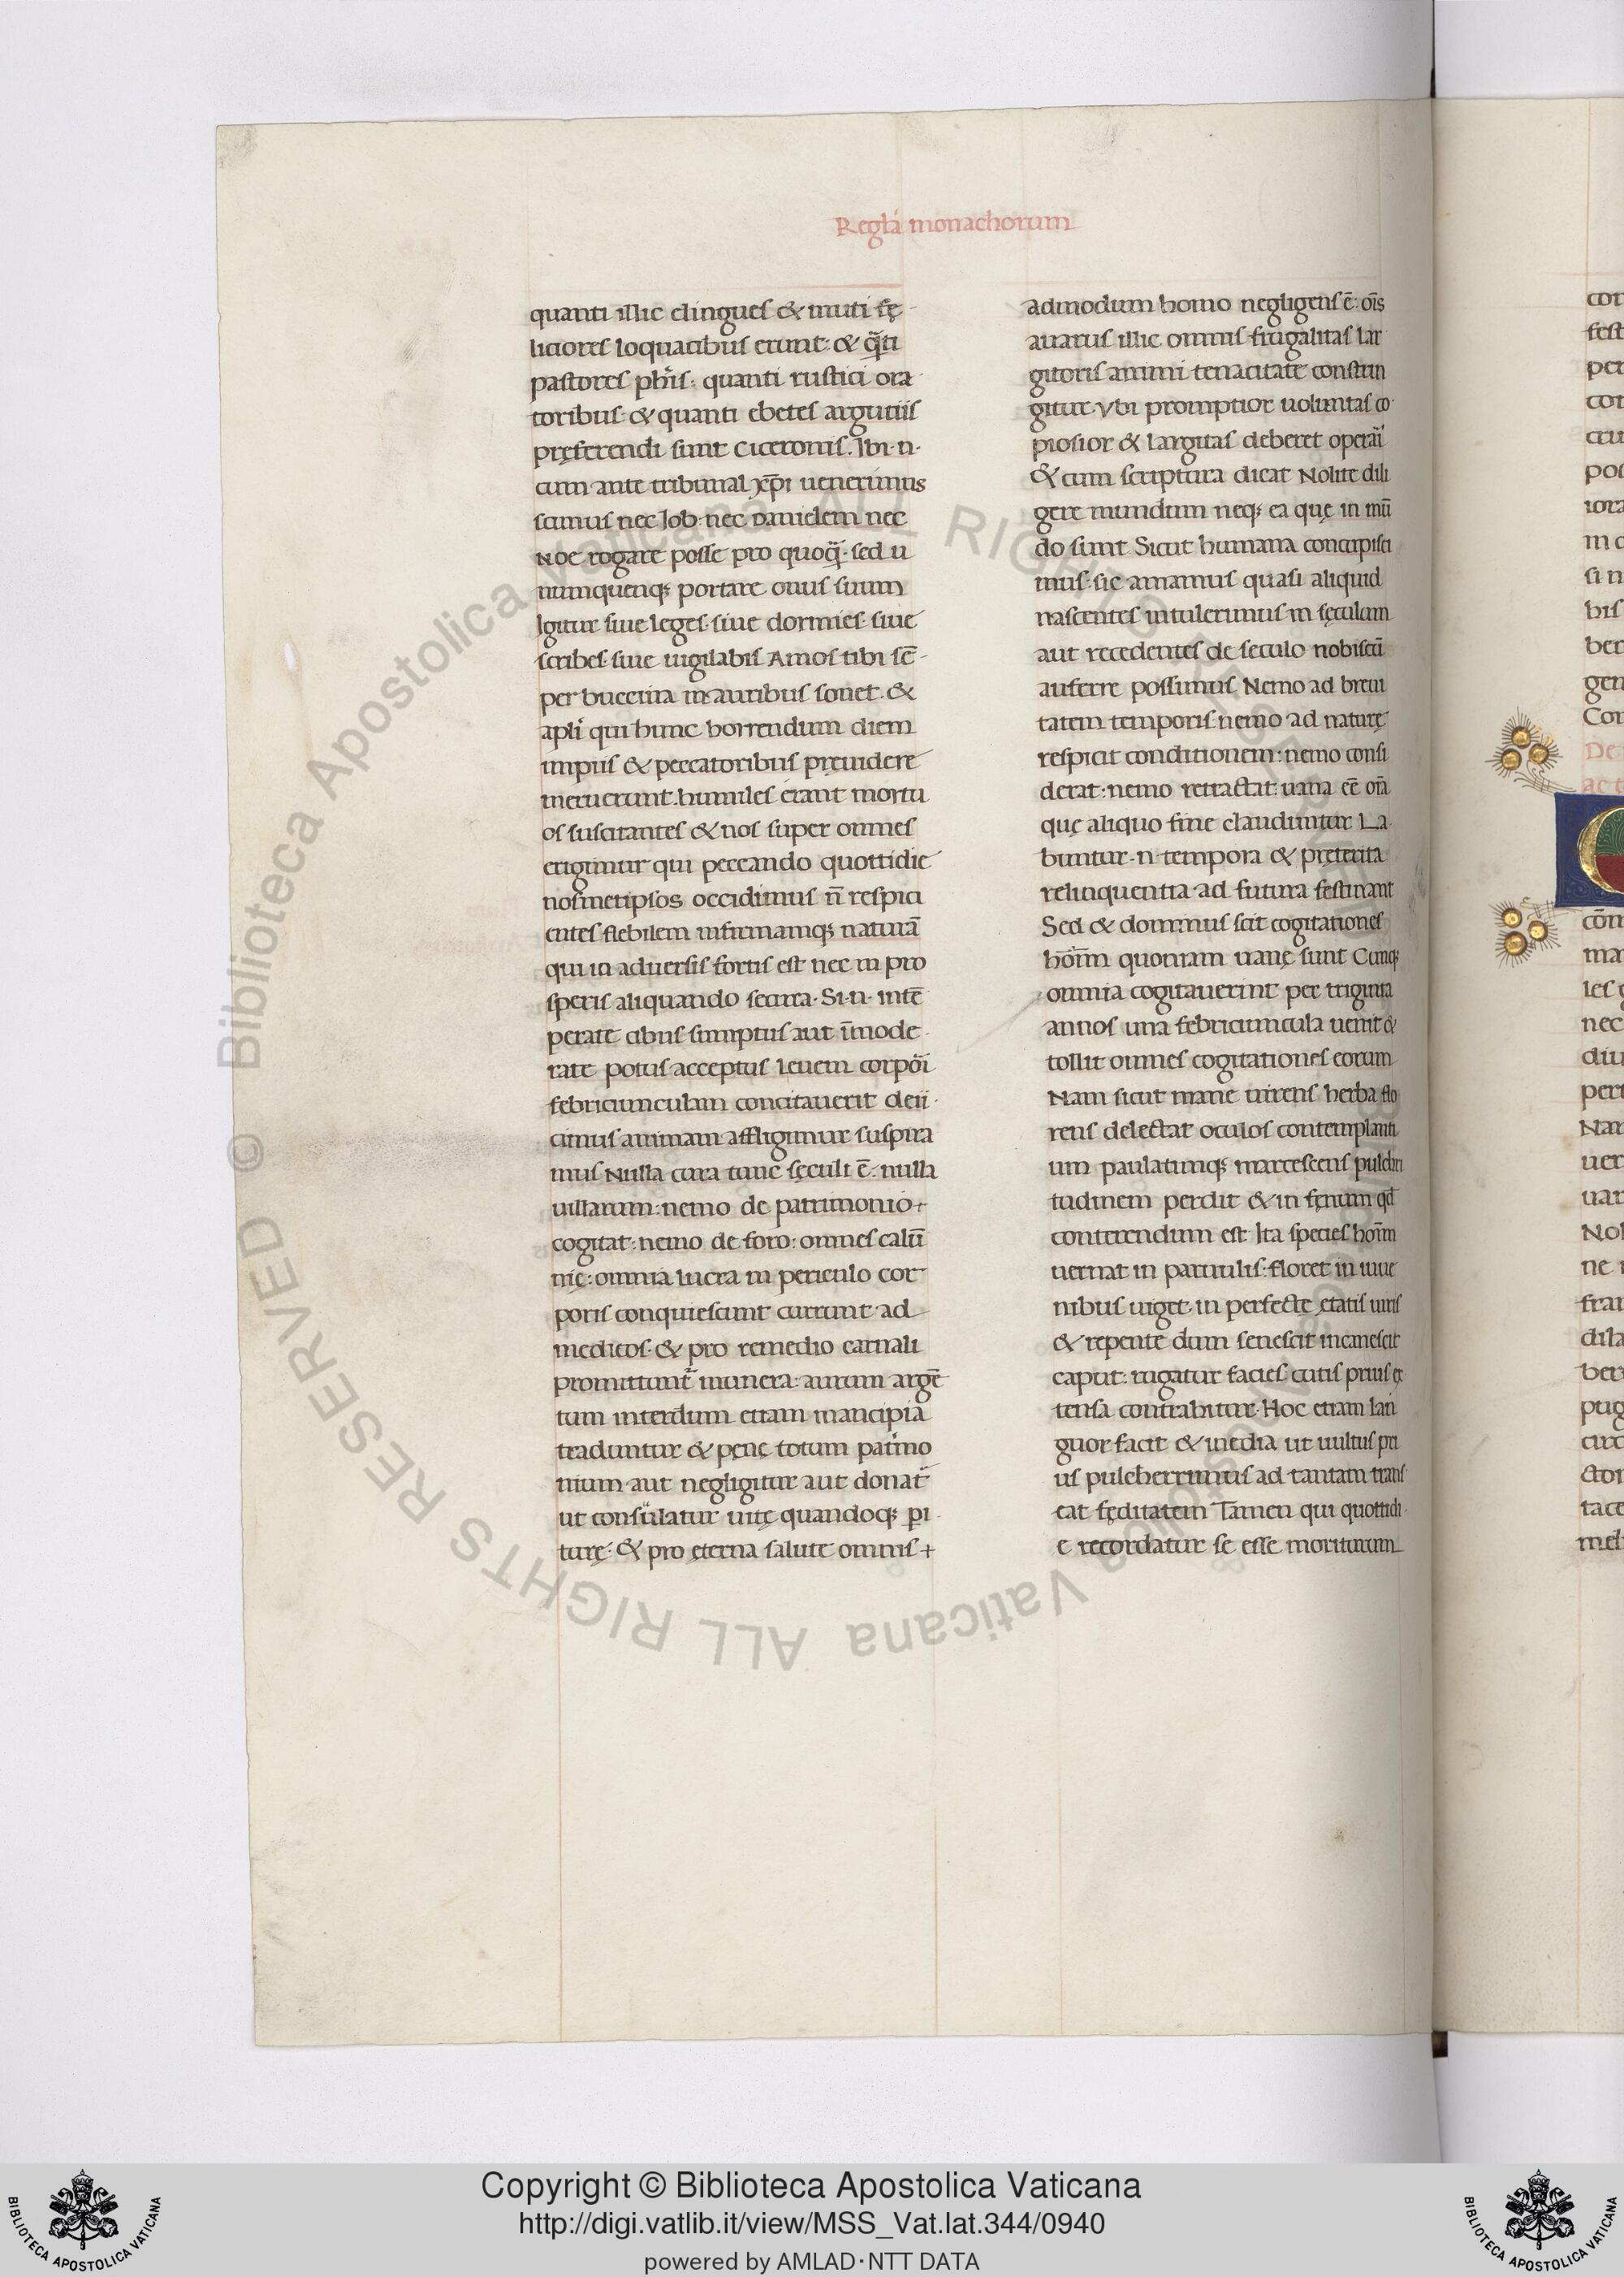 Regla᷑ monachorum
quanti illic elingues & muti fę
liciores loquacibus erunt: & q̃ti
pastores ph̃is: quanti rustici ora
toribus: & quanti ebetes argutiis
pręferendi sunt Ciceronis. Ibi .n.
cum ante tribunal xp̄i uenerimus
scimus nec Iob: nec Danielem nec
Noe rogare posse pro quoq̃. sed u
numquenq; portare onus suum
Igitur siue leges. siue dormies. siue
scribes. siue uigilabis Amos tibi sē
per buccina in auribus sonet. &
apłi qui hunc horrendum diem
impiis & peccatoribus pręuidere
meruerunt. humiles erant mortu
os suscitantes & nos super omnes
erigimur qui peccando quottidie
nosmetipsos occidimus ñ respici
entes flebilem infirmamq; naturā
qui in aduersis fortis est nec in pro
speris aliquando secura. Si .n. intē
perate cibus sumptus aut īmode
rate potus acceptus leuem corpori᷑
febriciunculam concitauerit deii
cimus animam affligimur suspira
mus Nulla cura tunc sęculi ē: nulla
uillarum: nemo de patrimonio
cogitat: nemo de foro: omnes calū
nię: omnia lucra in periculo cor
poris conquiescunt currunt ad
medicos. & pro remedio carnali
promittunt᷑ munera: aurum argē
tum interdum etiam mancipia
traduntur & penę totum patimo
nium aut negligitur aut donat᷑
ut consulatur uitę quandoq; peri
turę. & pro ęterna salute omnis
admodum homo negligens ē: ois̄
auarus illic omnis frugalitas lar
gitoris animi tenacitate constrin
gitur. Vbi promptior uoluntas co
piosior & largitas deberet operari᷑
& cum scriptura dicat Nolite dili
gere mundum neq; ea quę in mū
do sunt Sicut humana concupisci
mus. sic amamus quasi aliquid
nascentes intulerimus in sęculum
aut recedentes de seculo nobiscū
auferre possimus Nemo ad breui
tatem temporis nemo ad naturę
respicit conditionem: nemo consi
derat: nemo retractat: uana eē oīa
quę aliquo fine clauduntur La
buntur .n. tempora & pręterita
relinquentia ad futura festinant
Sed & dominus scit cogitationes
hoīm quoniam uanę sunt Cunq;
omnia cogitauerint per triginta
annos una febriciuncula uenit &
tollit omnes cogitationes eorum
Nam sicut mane uirens herba flo
rens delectat oculos contemplanti
um paulatimq; marcescens pulchri
tudinem perdit & in fęnum qd̄
conterendum est Ita species hoīm
uernat in paruulis: floret in iuue
nibus uiget in perfecte ętatis uiris
& repente dum senescit incanescit
caput: rugatur facies cutis prius ex
tensa contrahitur. Hoc etiam lan
guor facit & inedia ut uultus pri
us pulcherrimus ad tantam trans
eat fęditatem Tamen qui quottidi
e recordatur se esse moriturum
Copyright © Biblioteca Apostolica Vaticana
http://digi.vatlib.it/view/MSS_Vat.lat.344/0940
powered by AMLAD·NTT DATA
© Biblioteca Apostolica Vaticana ALL RIGHTS RESERVED
BIBLIOTECA APOSTOLICA VATICANA
BIBLIOTECA APOSTOLICA VATICANA